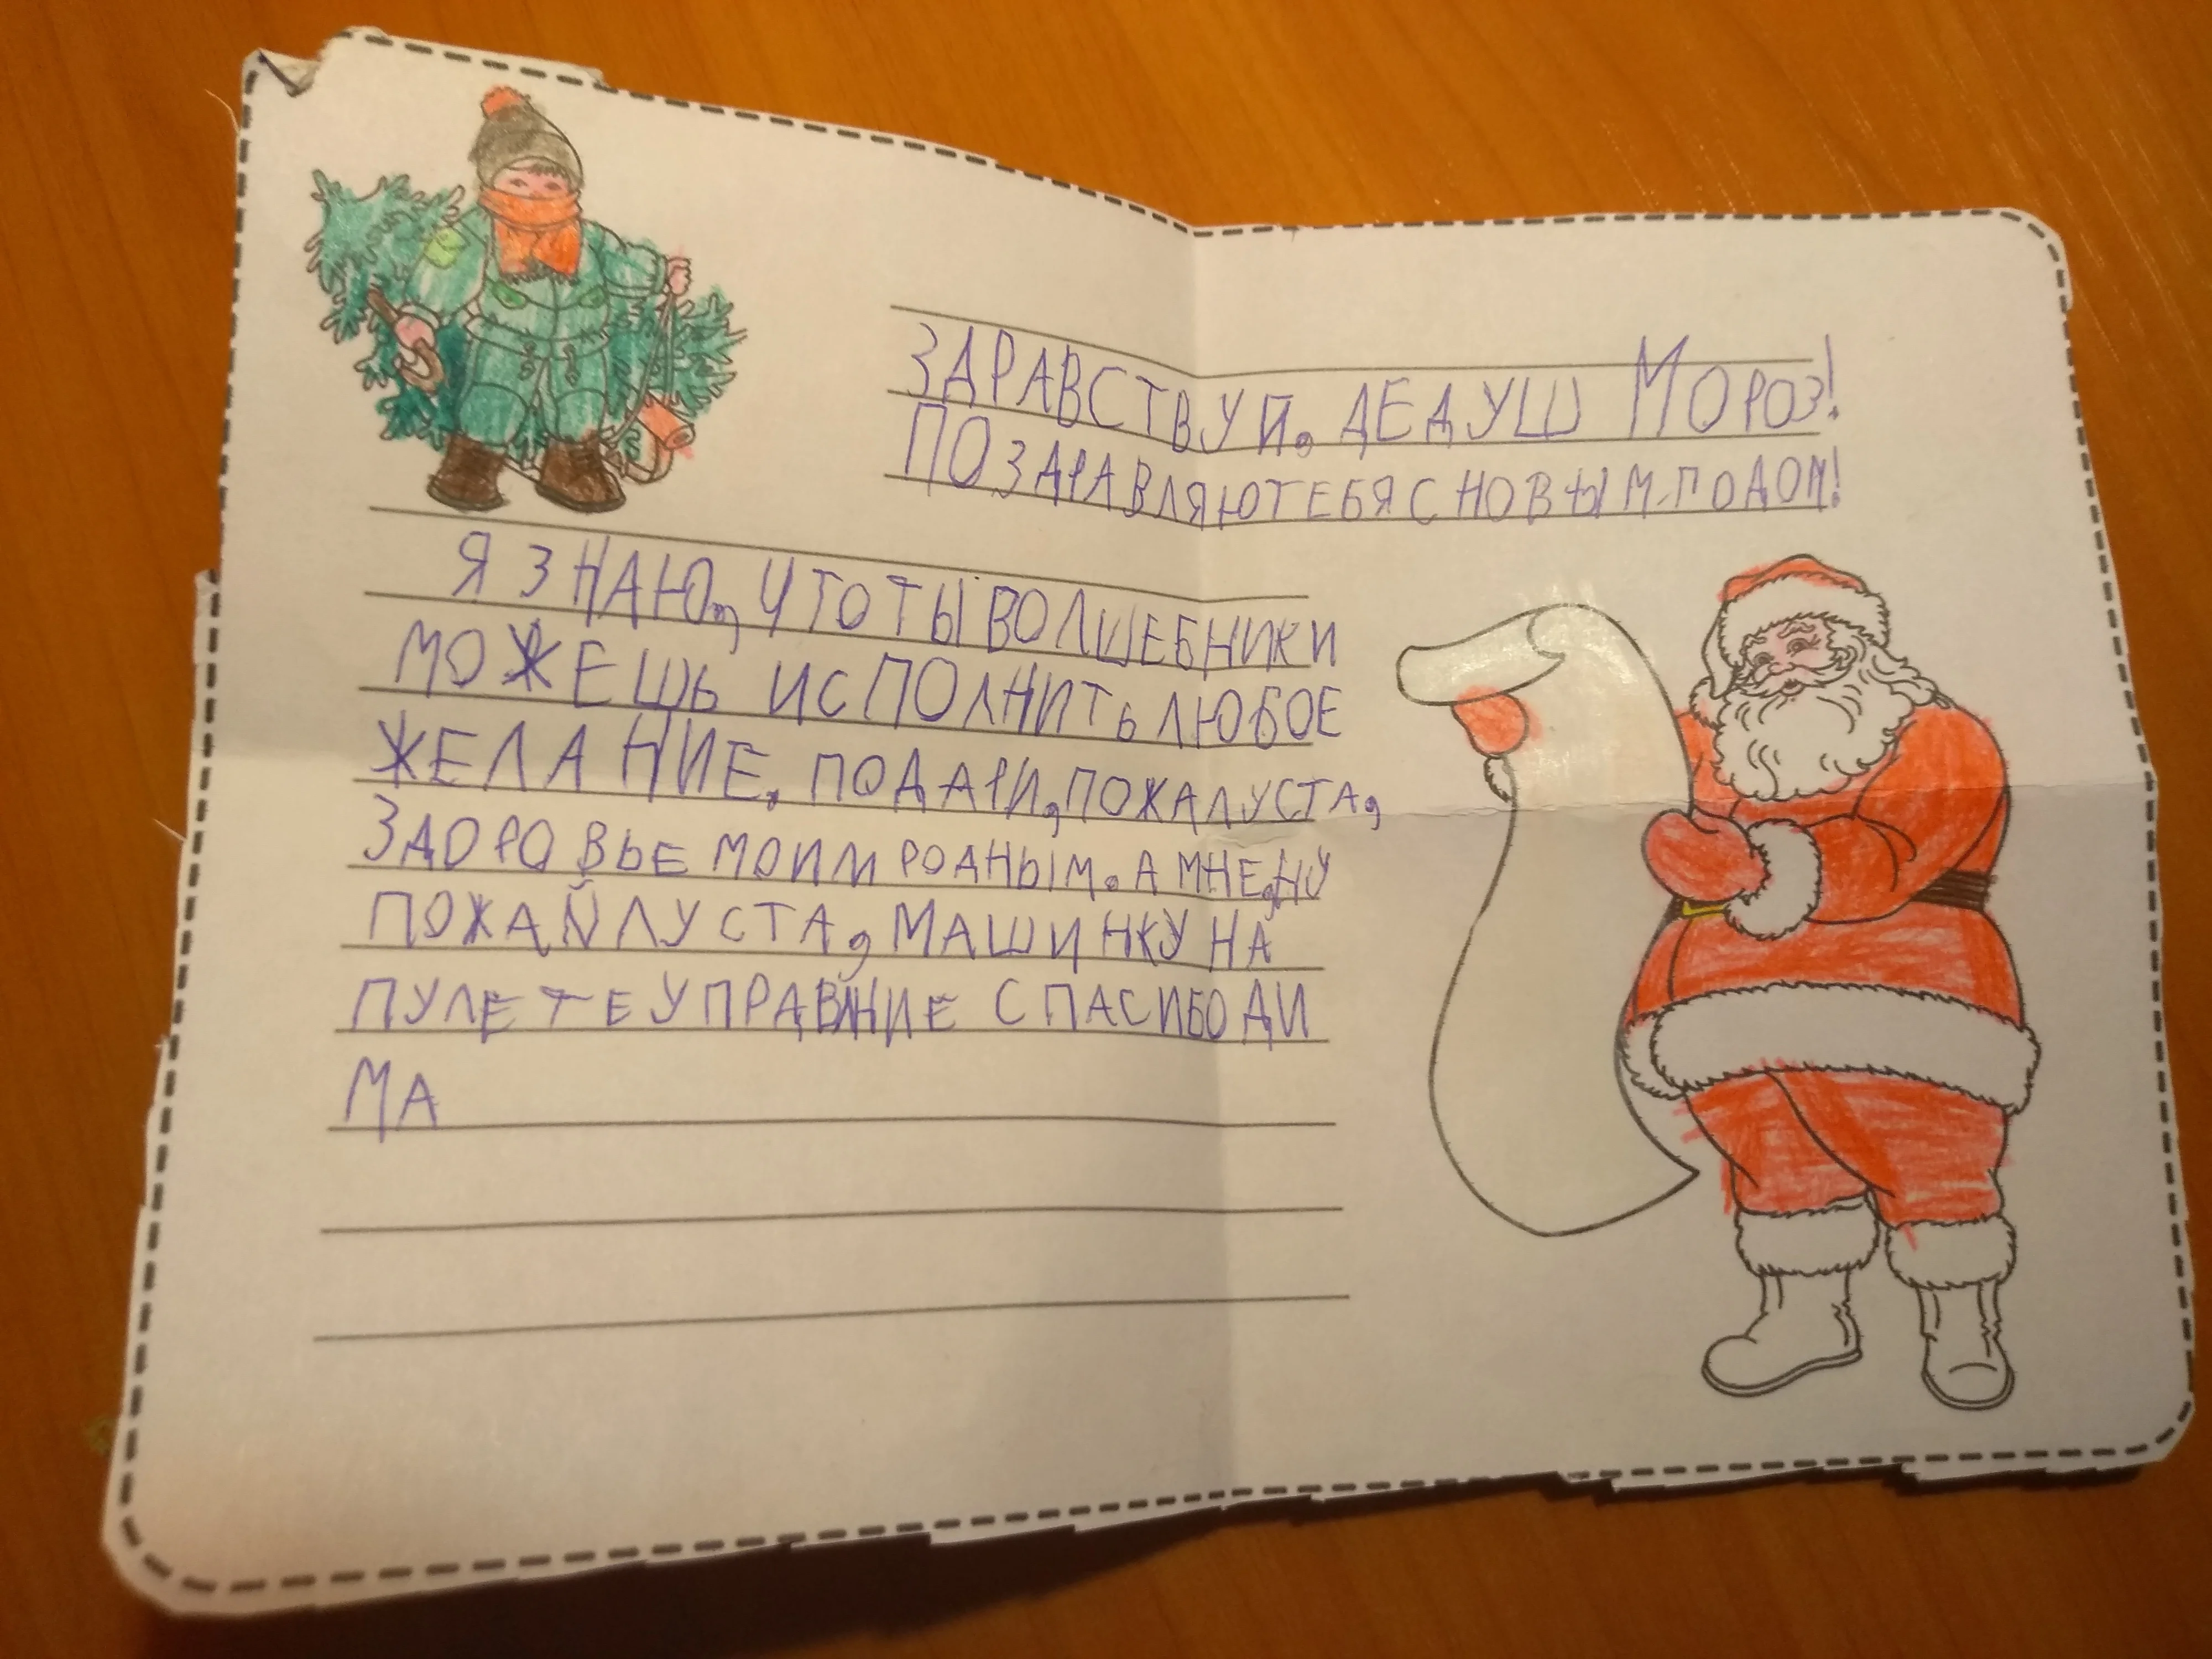 ЗДРАВСТВУЙ, ДЕДУШ МОРОЗ!
ПОЗДРАВЛЯЮ ТЕБЯ С НОВЫМ ГОДОМ!
Я ЗНАЮ, ЧТО ТЫ ВОЛШЕБНИК И
МОЖЕШЬ ИСПОЛНИТЬ ЛЮБОЕ
ЖЕЛАНИЕ. ПОДАРИ, ПОЖАЛУСТА,
ЗДОРОВЬЕ МОИМ РОДНЫМ. А МНЕ, НУ
ПОЖАЙЛУСТА, МАШИНКУ НА
ПУЛЕТЕ УПРАВНИЕ СПАСИБО ДИ
МА